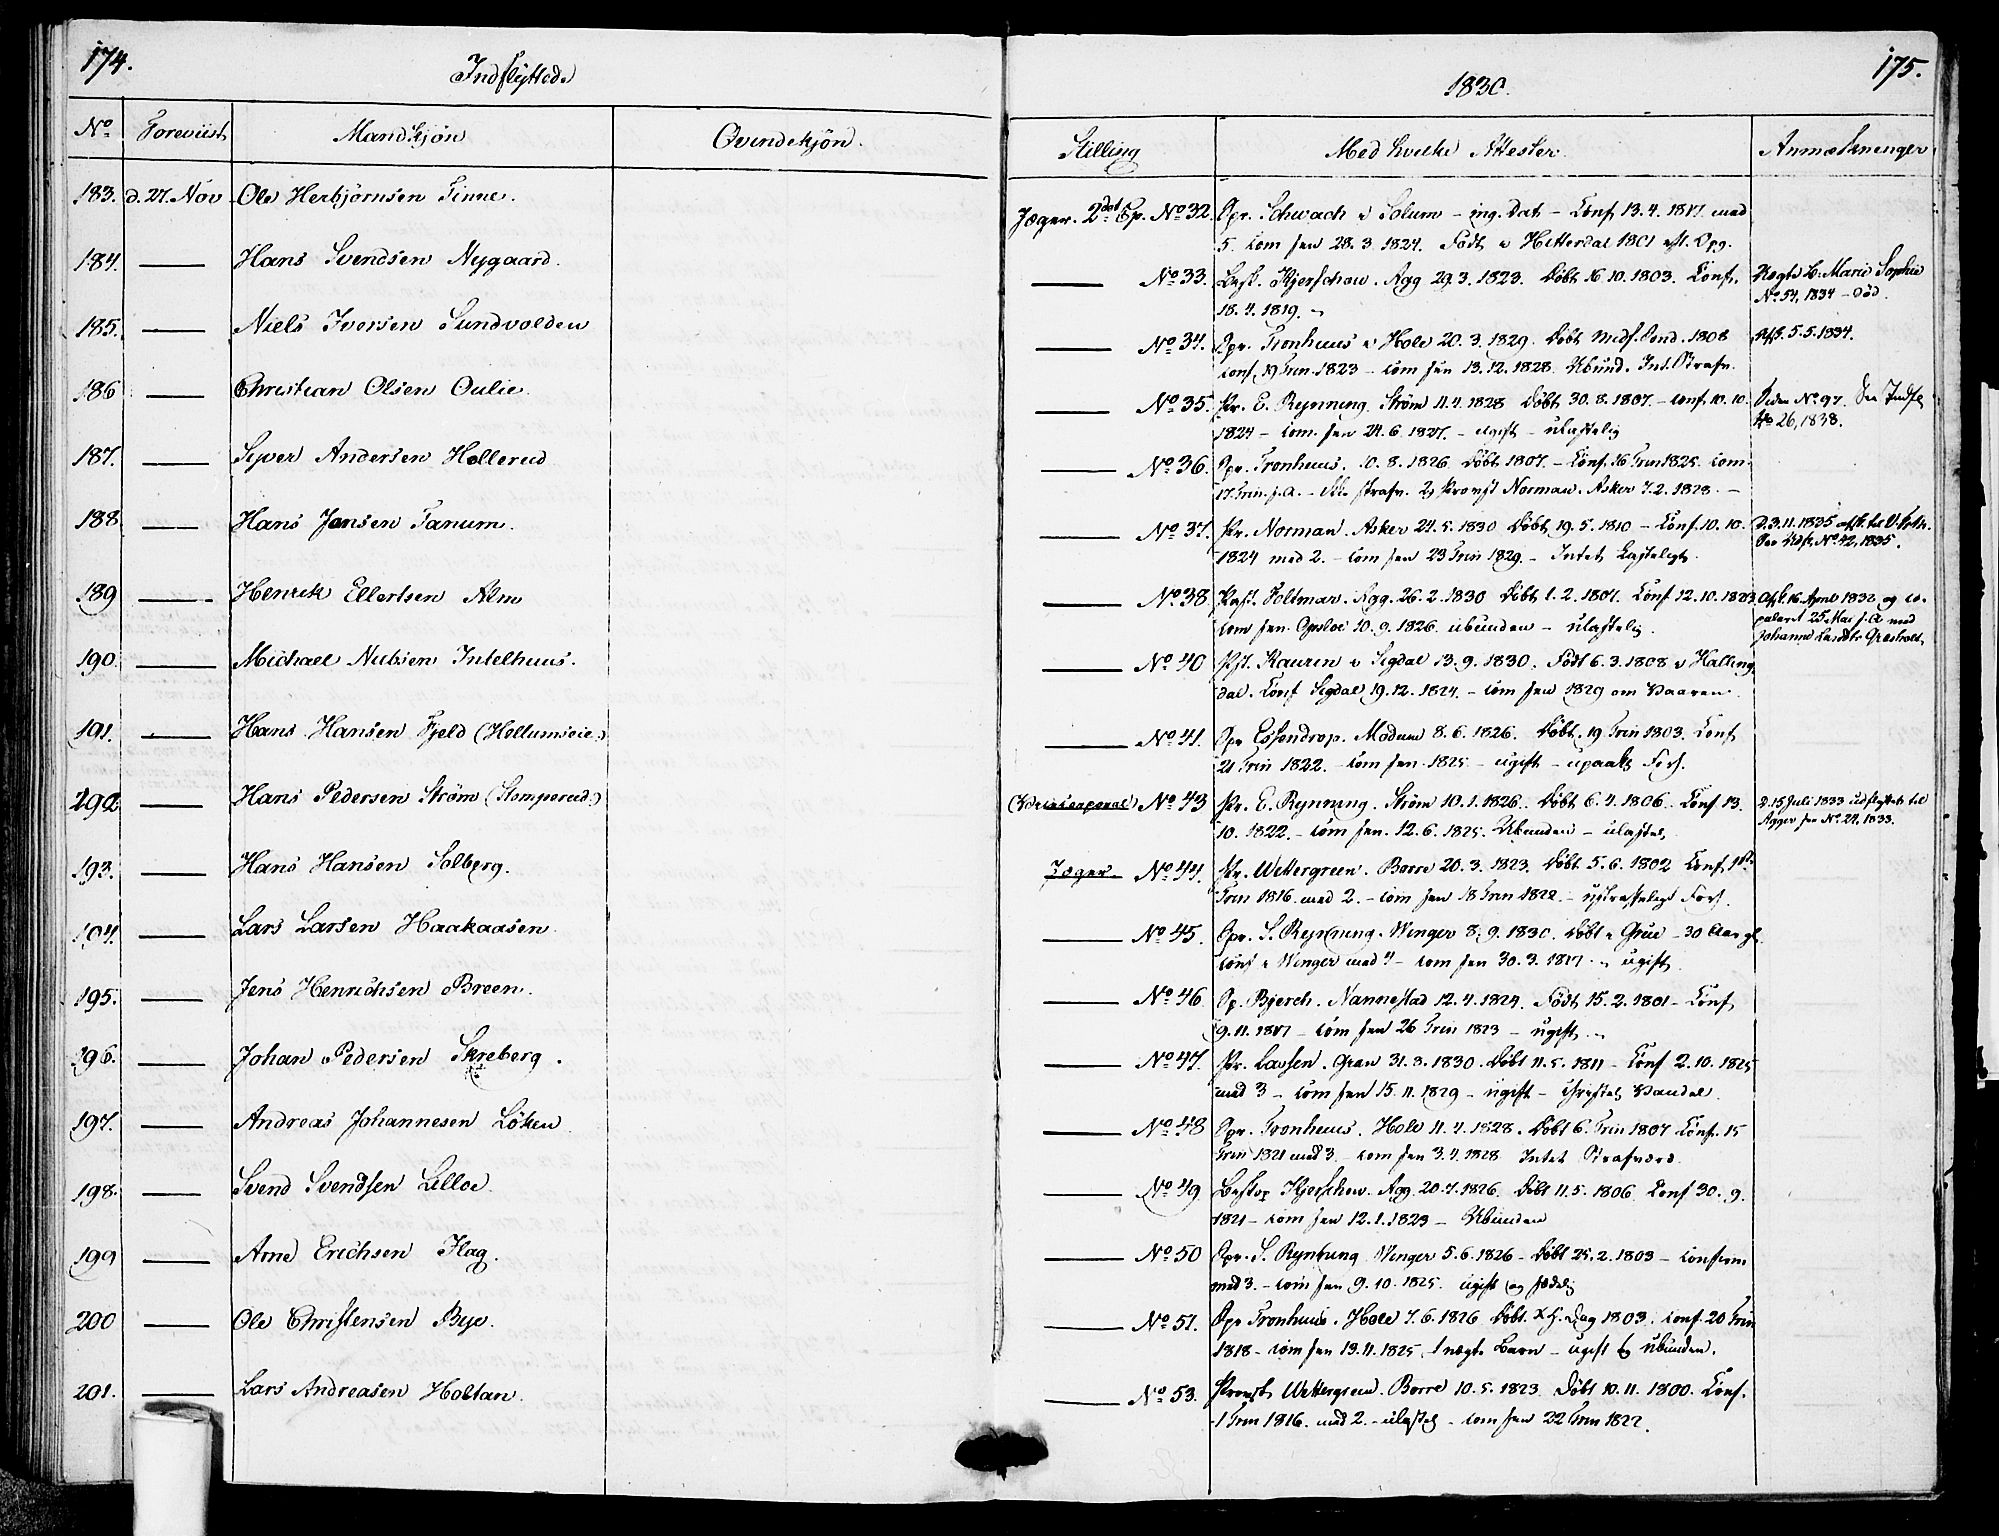 174.
Indflyttede
No Foreviist Mandkjön Qvindekjön.
183. d. 27. Nov Ole Herbjörnsen Tinne.
184. Hans Svendsen Nygaard.
185. Niels Iversen Sundvolden
186 Christian Olsen Oulie.
187. Syver Andersen Hollerud
188 Hans Jansen Tanum.
189 Henrik Ellertsen Alm
190. Michael Nubsen Intelhuus.
191. Hans Hansen Fjeld (Hellumseie)
192 Hans Pedersen Ström (Stomperud)
193. Hans Hansen Solberg.
194. Lars Larsen Haakaasen
195. Jens Henrichsen Breen.
196. Johan Pedersen Skreberg.
197. Andreas Johannesen Löken
198. Svend Svendsen Lilloe.
199 Arne Erichsen Flag.
200 Ole Christensen Bye.
201. Lars Andreasen Holtan.
175.
1830.
Stilling Med hvilke Attester. Anmærkninger
Jæger. 2det No 32. Spr. Schwach i Solum - ing. Dat - Conf 13.4.1817 med
5. Com sen 28.3.1824. Födt i Hitterdal 1801 eft. Opg.
No 33. Kjerschow. Agg 29.3.1823. Döbt 16.10.1803. Conf. Marie Sophie
18.4.1819. No 54, 1834 - död.
No 34. Spr. Tronhuus i Hole 20.3.1829. Döbt 1808 5.5.1834.
conf. 19 Trin. 1823 - com sen 13.12.1828. Ubund. Int. Strafv.
No 35. Pr. E. Rynning. Ström 11.4.1828 Döbt 30.8.1807. - conf. 10.10. No 97. See Indfl
1824 - com. sen 24.6.1827. - ugift - ulastelig No 26, 1838.
No 36. Spr. Tronhuus. 10.8.1826 Döbt 1807. - Conf. 16 Trin 1825. com
17 Trin. s.a. - strafv. 2, Provst Norman. Asker 7.2.1828. -
No 37. Pr. Norman. Asker 24.5.1830 Döbt 19.5.1810 - Conf. 10.10. D. 3.11.1835
1824 med 2. - com sen 23 Trin 1829. - Intet Lasteligt. See Udfl. No 42, 1835.
No 38 Holtmar. Agg. 26.2.1830 Döbt 1.2.1807. Conf 12.10.1823. 16 April 1832 og co-
com sen Opsloe 10.9.1826. ubunden - ulastelig. puleret 25 Mai s.A. med
Johanne
No 40 Kauren i Sigdal 13.9.1830. Födt 6.3.1808 i Halling
dal. Conf Sigdal 19.12.1824. - com sen 1829 om Vaaren.
No 41. Spr Essendrop. Modum 8.6.1826. Döbt. 19 Trin 1803. Conf
21 Trin 1822. - com sen 1825 - ugift - upaakl Forh.
No 43 Pr. E. Rynning. Ström 10.1.1826. Döbt 6.4.1806. Conf 13. D. 15 Juli 1833 udflyttet til
10.1822. - com sen. 12.6.1825. Ubunden - ulastel. Agger see No 24, 1833.
Jæger No 44. Pr. Wettergreen. Borre 20.3.1823. Döbt 5.6.1802 Conf. 1ste
Trin 1816. med 2. - com sen 18 Trin 1822. - ustraffeligt Forh.
No 45. Spr. S. Rynning. Winger 8.9.1830. Döbt i Grue - 30 Aar gl.
conf i Winger med 4 - com sen 30.3.1817. - ugift.
No 46 Sp. Bjerch. Nannestad 12.4.1824. Födt 15.2.1801 - Conf
9.11.1817 - com sen 26 Trin 1823 - ugift.
No 47. Pr. Lassen. Gran 31.3.1830. Döbt 11.5.1811 - Conf 2.10.1825
med 3 - com sen 15.11.1829 - ugift - christel Vandel.
No 48 Spr. Tronhuus. Hole 11.4.1828. Döbt 6. Trin 1807 Conf. 15
Trin 1821 med 3. - com sen 3.4.1828 Intet Strafværd.
No 49 Kjerschow. Agg. 20.4.1826. Döbt 11.5.1806. Conf 30.9.
1821 - com sen 12.1.1823 - Ubunden
No 50 Spr. S. Rynning Winger 5.6.1826 - Döbt 25.2.1803 - confirm
med 3. - com sen 9.10.1825. ugift og sædelig
No 51. Spr Tronhuus. Hole 7.6.1826 Döbt. Dag 1803. conf. 20 Trin
1818 - com sen 13.11.1825, 1 uægte Barn - ugift og ubunden.
No 53. Provst Wettergreen. Borre 10.5.1823. Döbt 10.11.1800. Conf.
1 Trin 1816. med 2. - ulastel - com sen 22 Trin 1822.